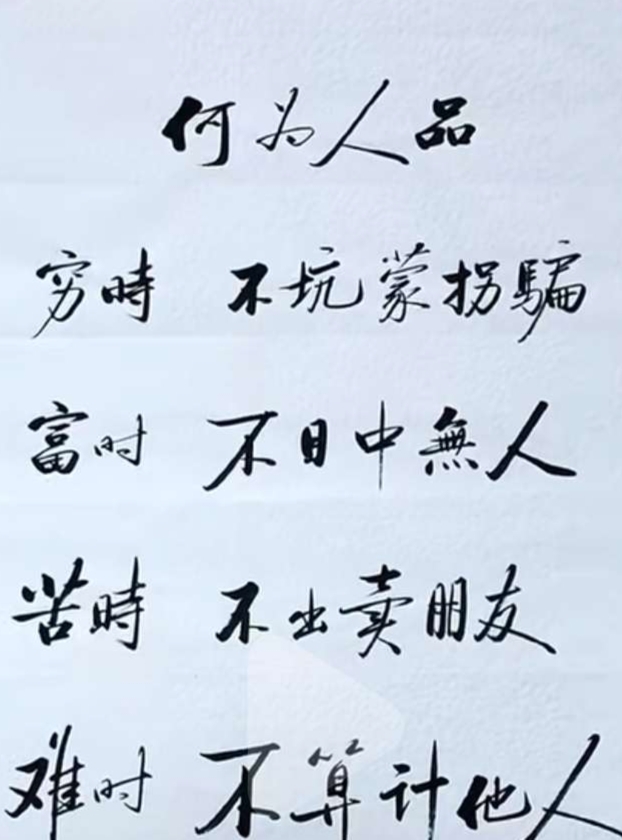 何为人品
穷時 不坑蒙拐騙
富时 不目中無人
苦時 不出卖朋友
难时 不算计他人